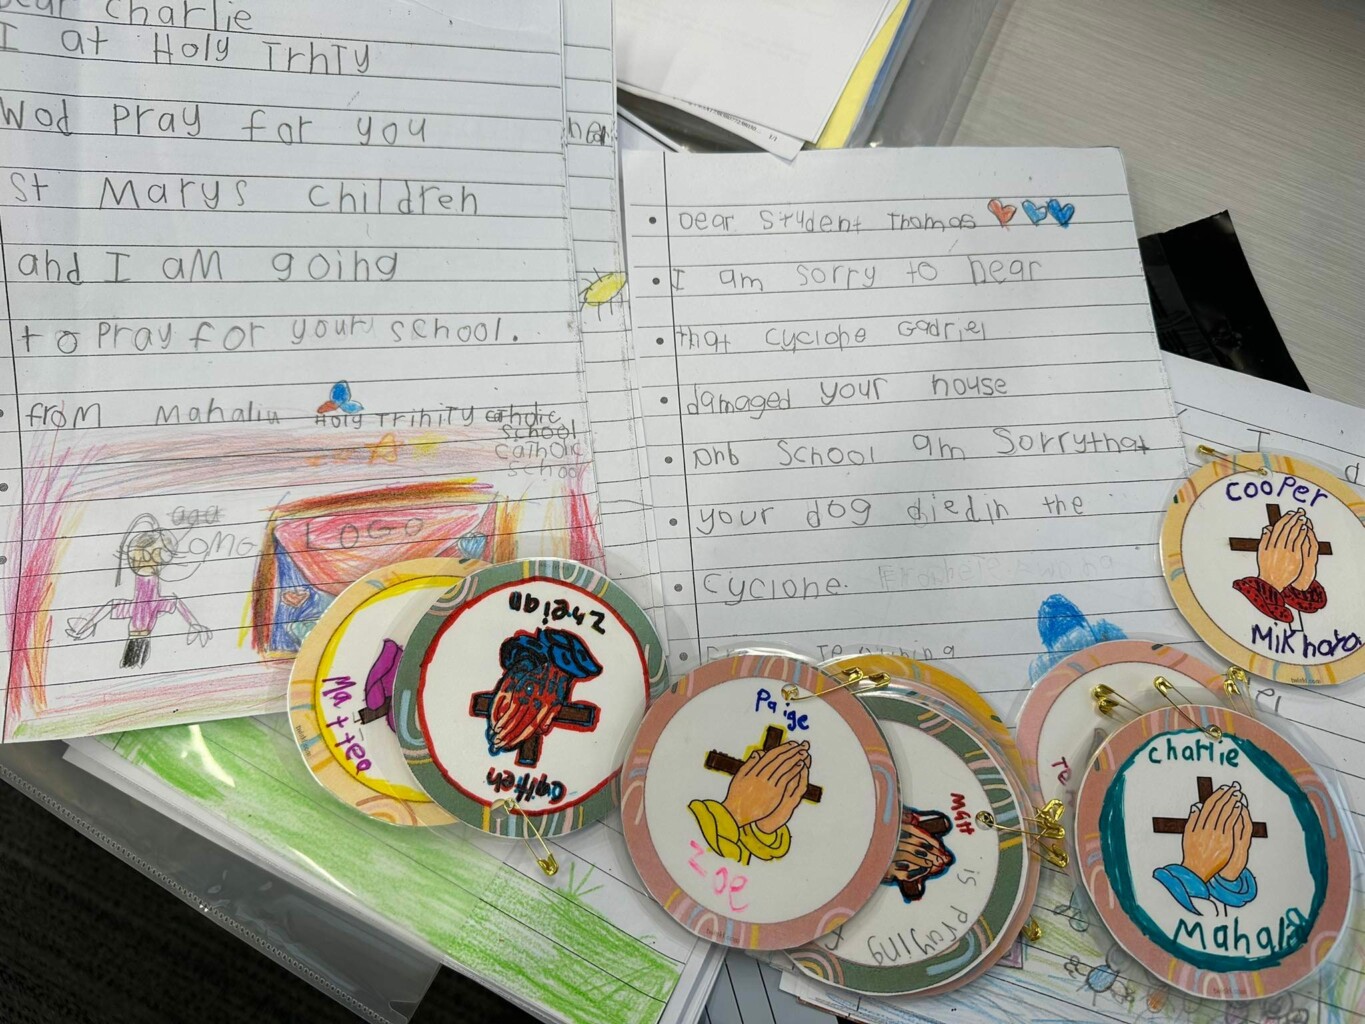 Dear Charlie
I at Holy Trhty
wod pray for you
St Marys children
and I am going
to pray for your school.
from Mahalia Holy Trihity catholic
school
catholic
school
LOMG
LOGO
Dear Stydent Thomas
I am sorry to hear
that cyclohe Gabriel
damaged your house
Anb School am Sorrythat
your dog diedin the
cyclone.
Cooper
Mikhara
Matteo
Zheian
Paige
Zoe
Matt
is praying
Charlie
Mahalia